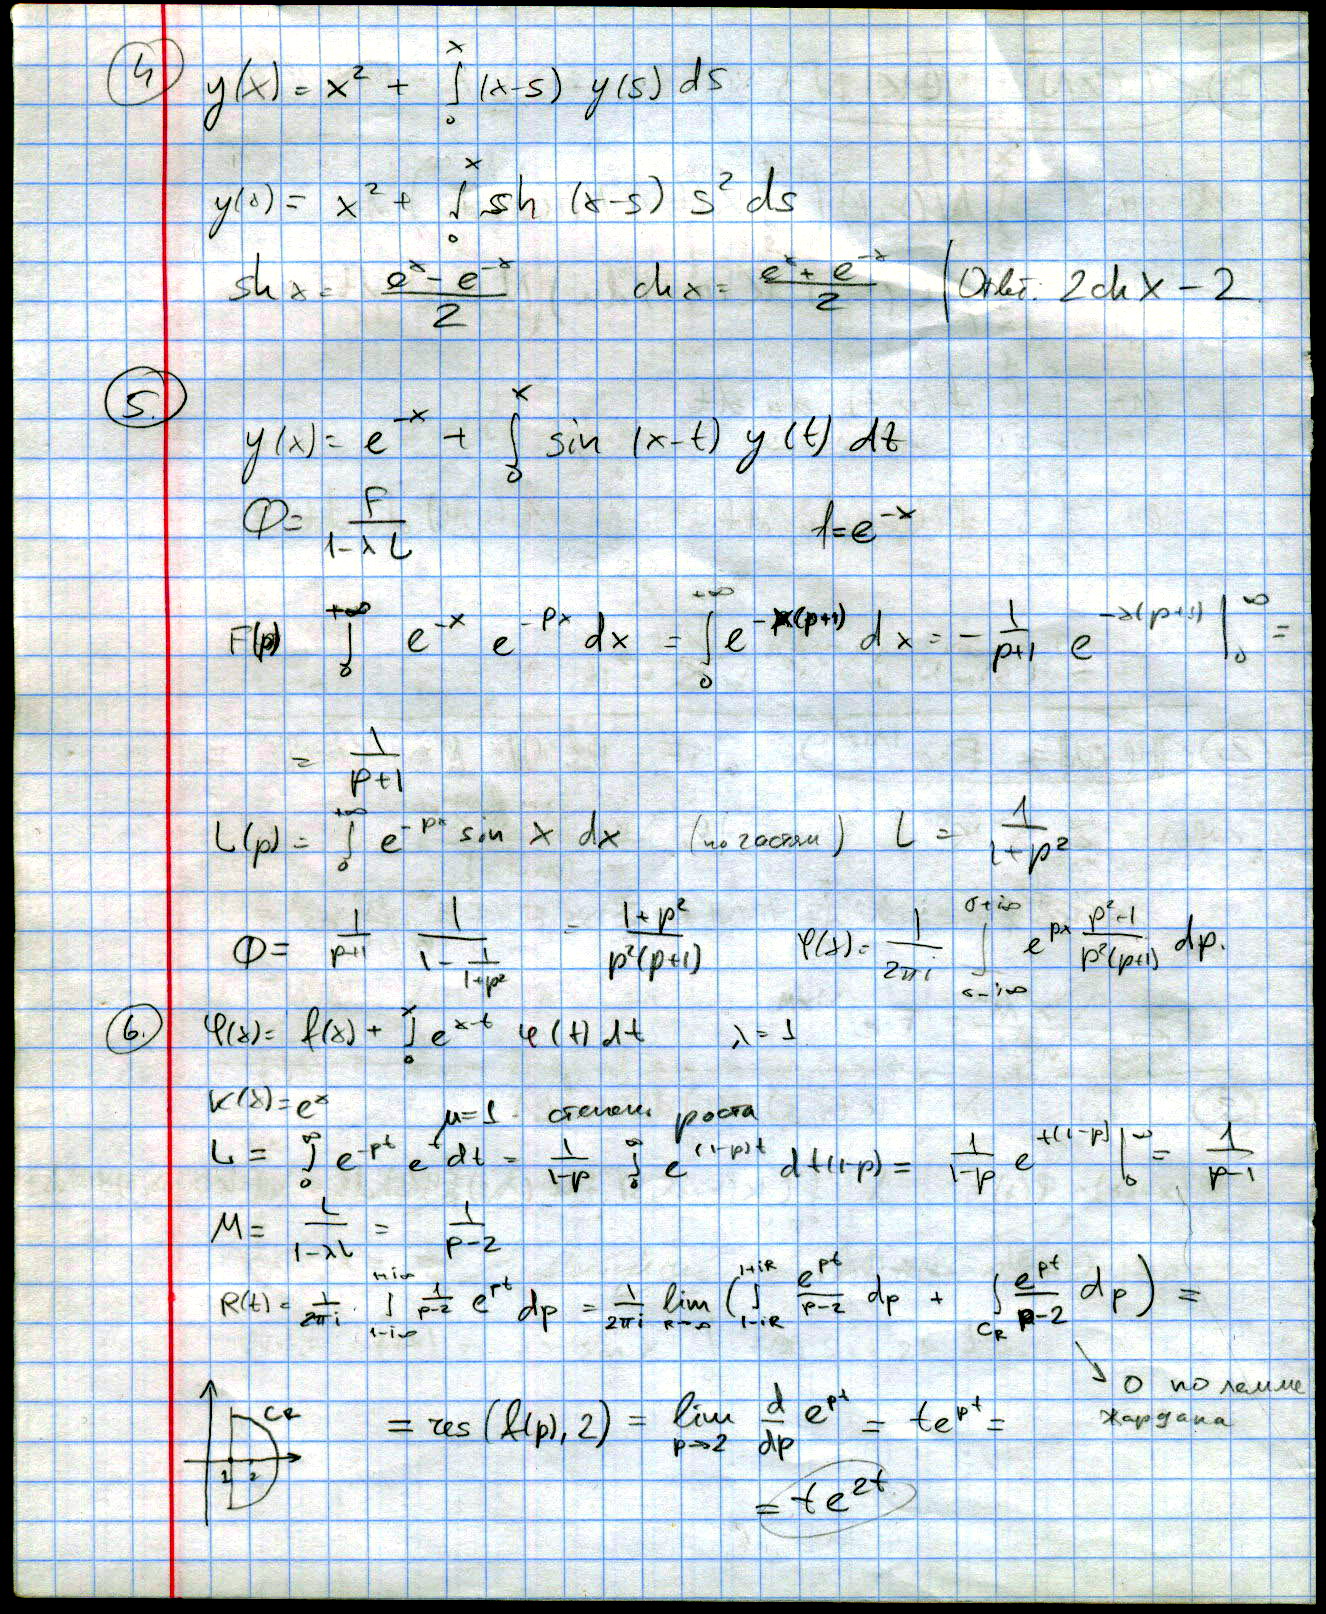 4) y(x) = x² + ∫₀ˣ (x-s) y(s) ds
y(x) = x² + ∫₀ˣ sh (x-s) s² ds
sh x = (eˣ - e⁻ˣ)/2    ch x = (eˣ + e⁻ˣ)/2 | Ответ: 2chx - 2
5. y(x) = e⁻ˣ + ∫₀ˣ sin (x-t) y(t) dt
Φ = F/(1-λL)    f = e⁻ˣ
F(p) ∫₀^{+∞} e⁻ˣ e^{-px} dx = ∫₀^{+∞} e^{-x(p+1)} dx = - 1/(p+1) e^{-x(p+1)} |₀^∞ =
= 1/(p+1)
L(p) = ∫₀^{+∞} e^{-px} sin x dx (по частям) L = 1/(1+p²)
Φ = 1/(p+1) · 1/(1 - 1/(1+p²)) = (1+p²)/(p²(p+1))    φ(x) = 1/(2πi) ∫_{σ-i∞}^{σ+i∞} e^{px} (p²+1)/(p²(p+1)) dp.
6. φ(x) = f(x) + ∫₀ˣ e^{x-t} φ(t) dt    λ = 1
K(x) = eˣ    μ=1 - степень роста
L = ∫₀^∞ e^{-pt} e^t dt = 1/(1-p) ∫₀^∞ e^{(1-p)t} dt(1-p) = 1/(1-p) e^{t(1-p)} |₀^∞ = 1/(p-1)
M = L/(1-λL) = 1/(p-2)
R(t) = 1/(2πi) · ∫_{1-i∞}^{1+i∞} 1/(p-2) e^{pt} dp = 1/(2πi) lim_{R→∞} ( ∫_{1-iR}^{1+iR} e^{pt}/(p-2) dp + ∫_{C_R} e^{pt}/(p-2) dp ) =
→ 0 по лемме
Жордана
C_R
1 2
= res (f(p), 2) = lim_{p→2} d/dp e^{pt} = te^{pt} =
= te^{2t}